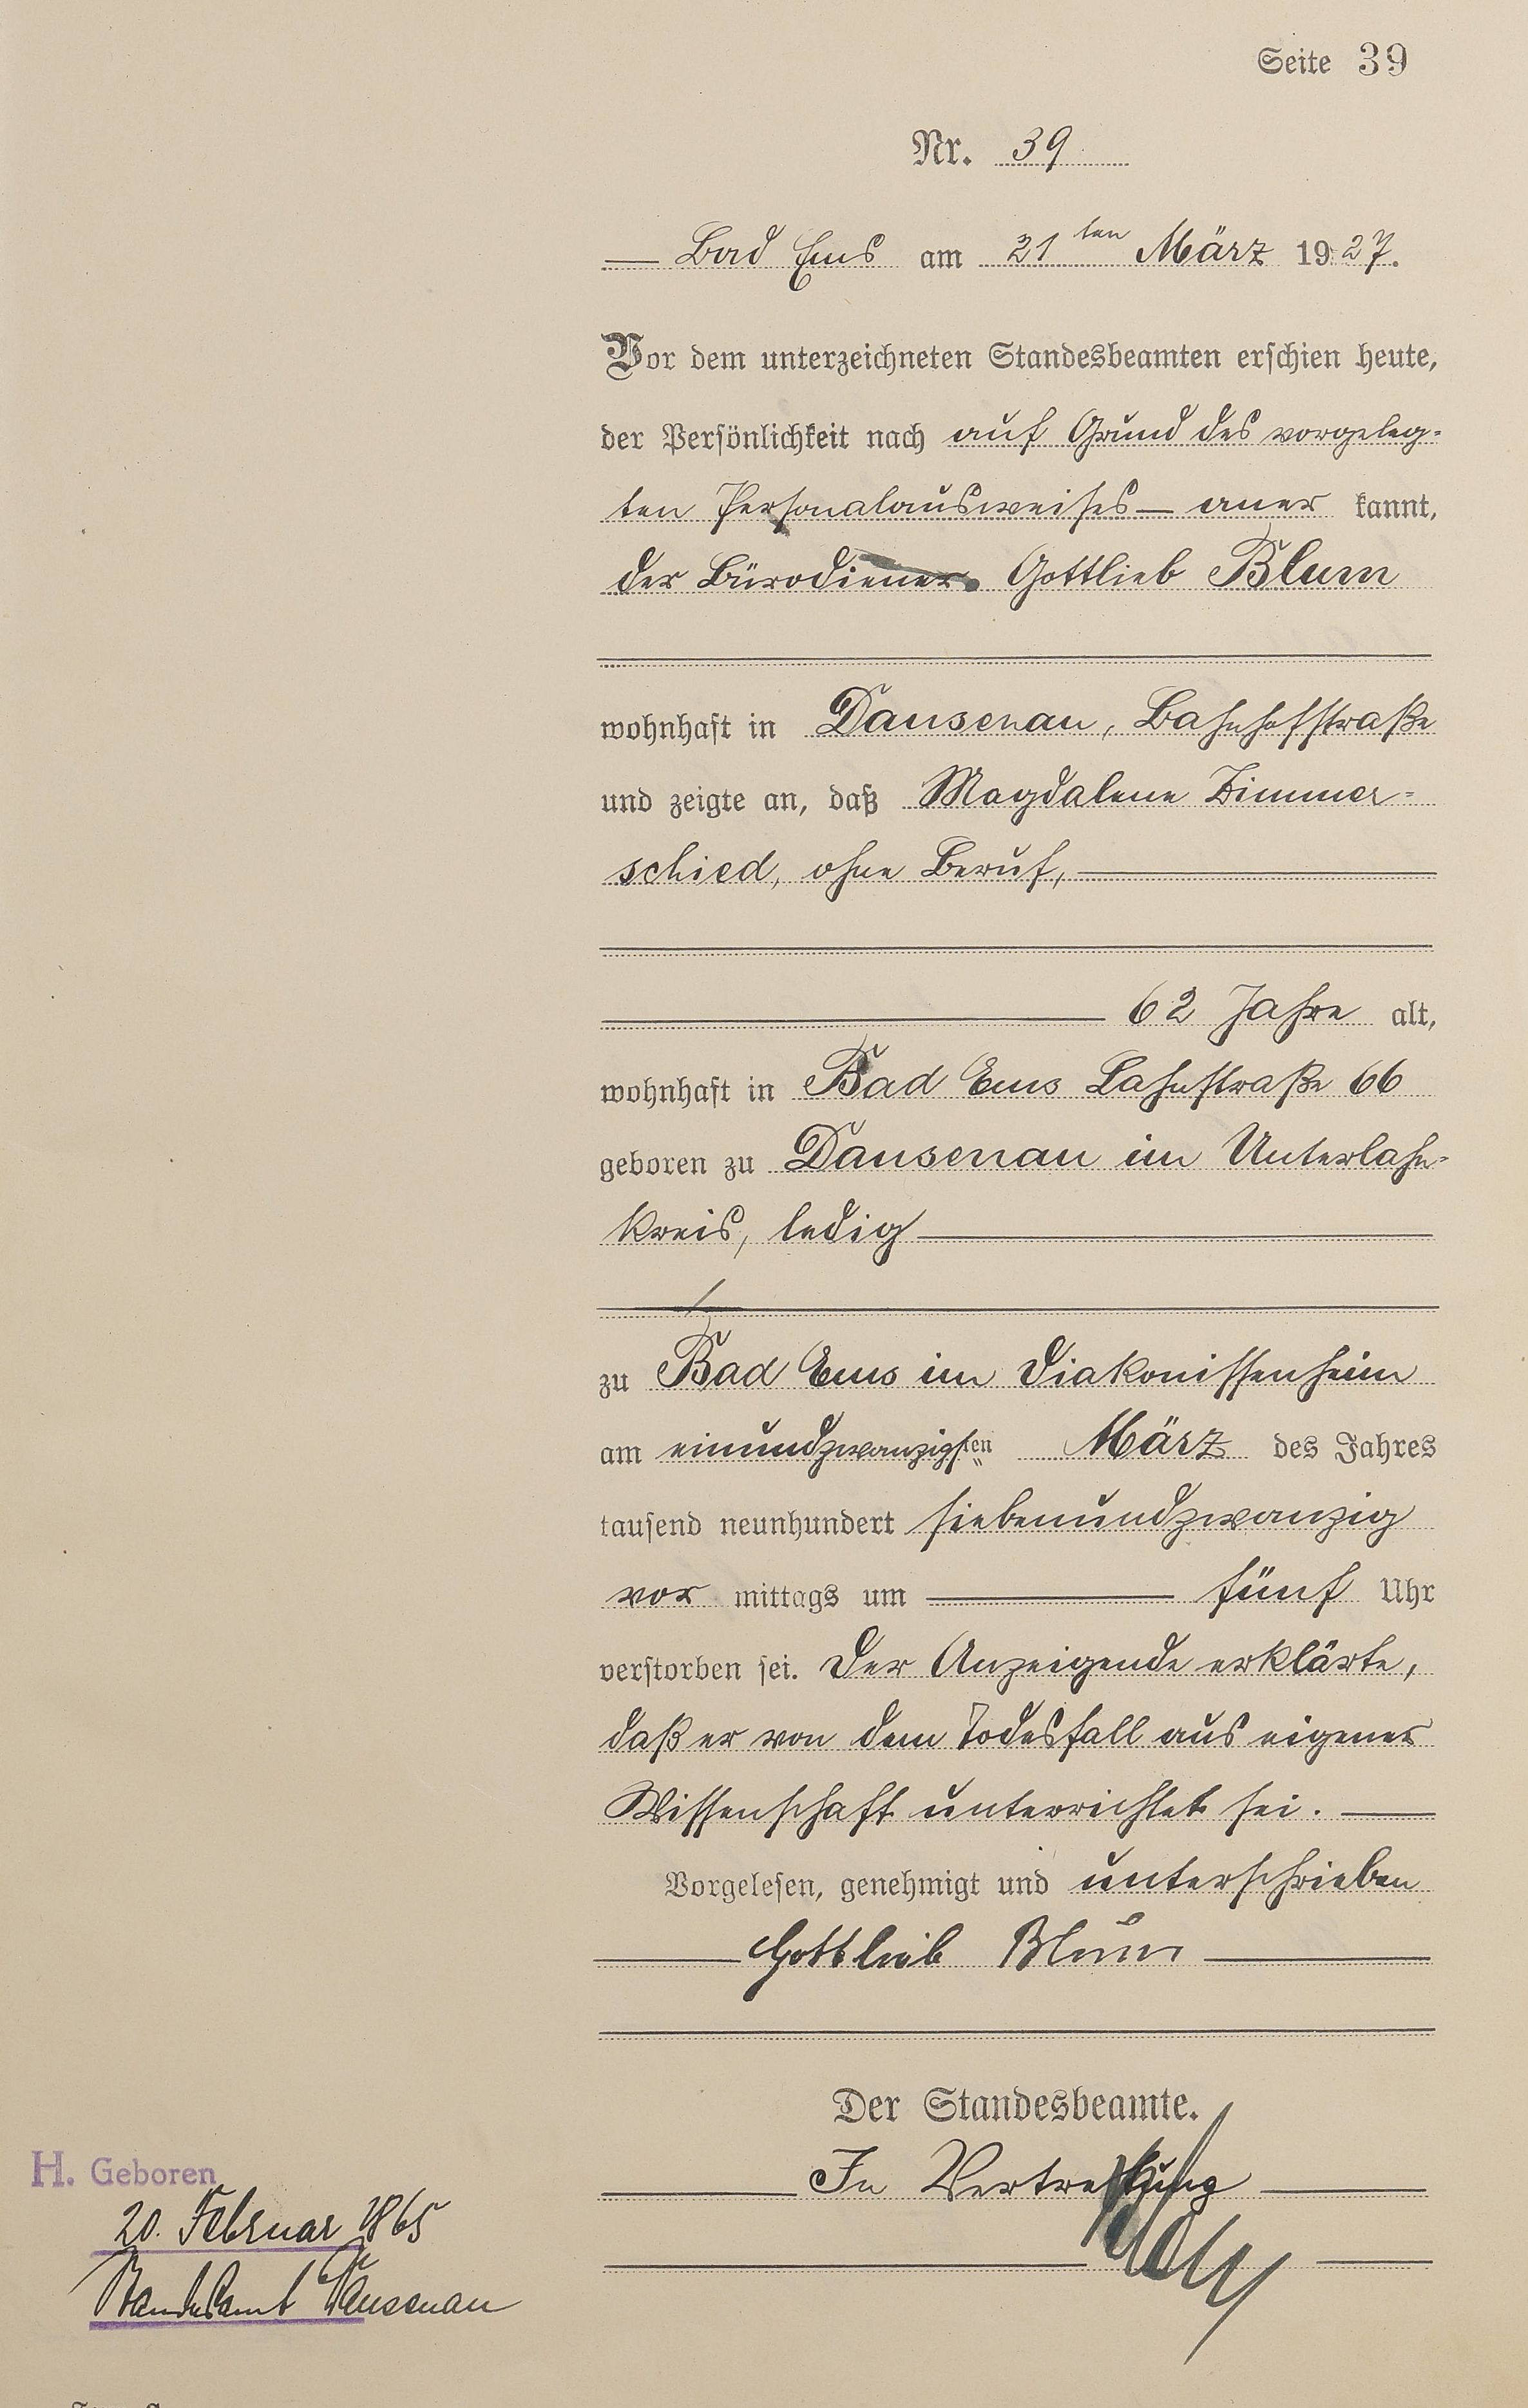 Seite 39
Nr. 39
Bad Ems am 21ten März 1927.
Vor dem unterzeichneten Standesbeamten erschien heute,
der Persönlichkeit nach auf Grund des vorgeleg-
ten Personalausweises — aner kannt,
der Bürodiener Gottlieb Blum
wohnhaft in Dausenau, Bahnhofstraße
und zeigte an, daß Magdalene Zimmer-
schied, ohne Beruf,
62 Jahre alt,
wohnhaft in Bad Ems Lahnstraße 66
geboren zu Dausenau im Unterlahn-
kreis, ledig
zu Bad Ems im Diakonissenheim
am einundzwanzigsten März des Jahres
tausend neunhundert siebenundzwanzig
vor mittags um fünf Uhr
verstorben sei. Der Anzeigende erklärte,
daß er von dem Todesfall aus eigener
Wissenschaft unterrichtet sei.
Vorgelesen, genehmigt und unterschrieben
Gottlieb Blum
Der Standesbeamte.
In Vertretung
H. Geboren
20. Februar 1865
Standesamt Dausenau